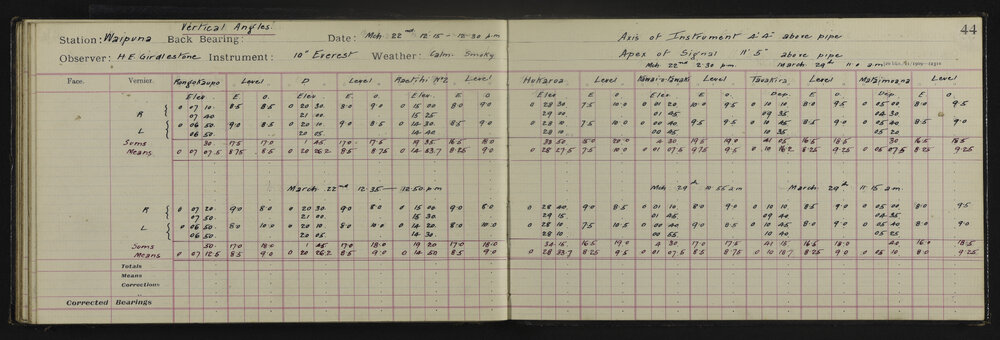 Vertical Angles
44
Station: Waipuna Back Bearing: Date: Mch. 22nd 12.15 – 12.30 p.m
Axis of Instrument 4' 4" above pipe
Observer: H.E. Girdlestone Instrument: 10" Everest Weather: Calm. Smoky
Apex of Signal 11' 5" above pipe
Mch 22nd 2.30 pm March 29th 11.0 a.m
Face. Vernier. Rangokaupo Level D Level Raetihi No2 Level Hukaroa Level Level Tawakira Level Mataimoana Level
Elev. E. O. Elev. E. O. Elev. E O Elev E. O. Elev. E. O. Dep. E. O. Dep. E O.
R 0 07 10 8.5 8.5 0 20 30 8.0 9.0 0 15 00 8.0 9.0 0 28 30 7.5 10.0 0 01 20 10.0 9.5 0 10 10 8.0 9.5 0 05 00 8.0 9.5
07 40 21 00 15 25 29 00 01 45 09 35 04 30
L 0 06 50 9.0 8.5 0 20 10 9.0 8.5 0 14 30 8.5 9.0 0 28 10 7.5 10.0 0 00 40 9.5 9.5 0 10 45 8.5 9.0 0 05 40 8.5 9.0
06 50 20 05 14 40 28 10 00 45 10 35 05 20
Sums 30 17.5 17.0 1 45 17.0 17.5 19 35 16.5 18.0 33 50 15.0 20.0 4 30 19.5 19.0 41 05 16.5 18.5 30 16.5 18.5
Means 0 07 07.5 8.75 8.5 0 20 26.2 8.5 8.75 0 14 53.7 8.25 9.0 0 28 27.5 7.5 10.0 0 01 07.5 9.75 9.5 0 10 16.2 8.25 9.25 0 05 07.5 8.25 9.25
March 22nd 12.35 – 12.50. p.m Mch 29th 10.55 a.m March 29th 11.15 a.m
R 0 07 20 9.0 8.0 0 20 30 9.0 8.0 0 15 00 9.0 8.0 0 28 40 9.0 8.5 0 01 10 8.0 9.0 0 10 10 8.5 9.0 0 05 00 8.0 9.5
07 50 21 00 15 30 29 15 01 45 09 40 04 35
L 0 06 50 8.0 10.0 0 20 10 8.0 10.0 0 14 20 8.0 10.0 0 28 10 7.5 10.5 0 00 40 9.0 8.5 0 10 45 8.0 9.0 0 05 40 8.0 9.0
06 50 20 05 14 30 28 10 00 55 10 40 05 25
Sums 50 17.0 18.0 1 45 17.0 18.0 19 20 17.0 18.0 34 15 16.5 19.0 4 30 17.0 17.5 41 15 16.5 18.0 40 16.0 18.5
Means 0 07 12.5 8.5 9.0 0 20 26.2 8.5 9.0 0 14 50 8.5 9.0 0 28 33.7 8.25 9.5 0 01 07.5 8.5 8.75 0 10 18.7 8.25 9.0 0 05 10 8.0 9.25
Totals
Means
Corrections
Corrected Bearings